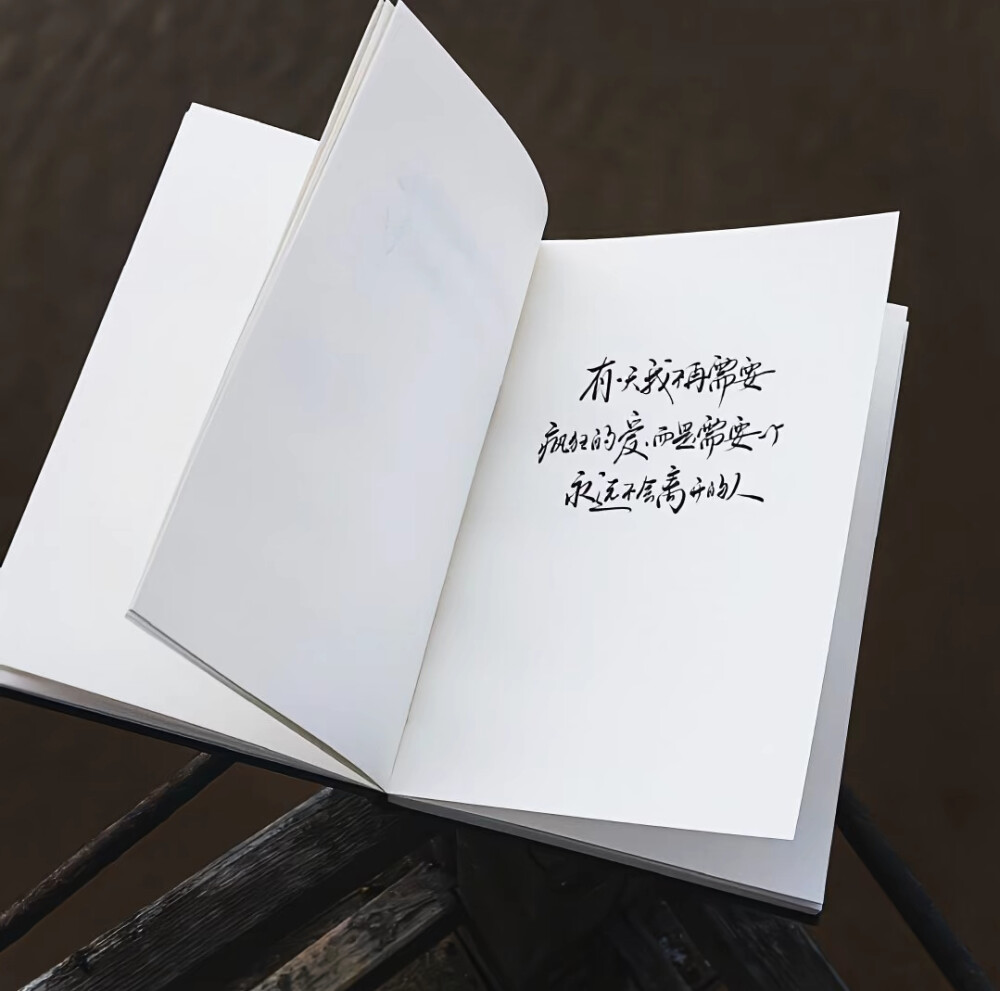 有一天我不再需要
疯狂的爱,而是需要一个
永远不会离开的人